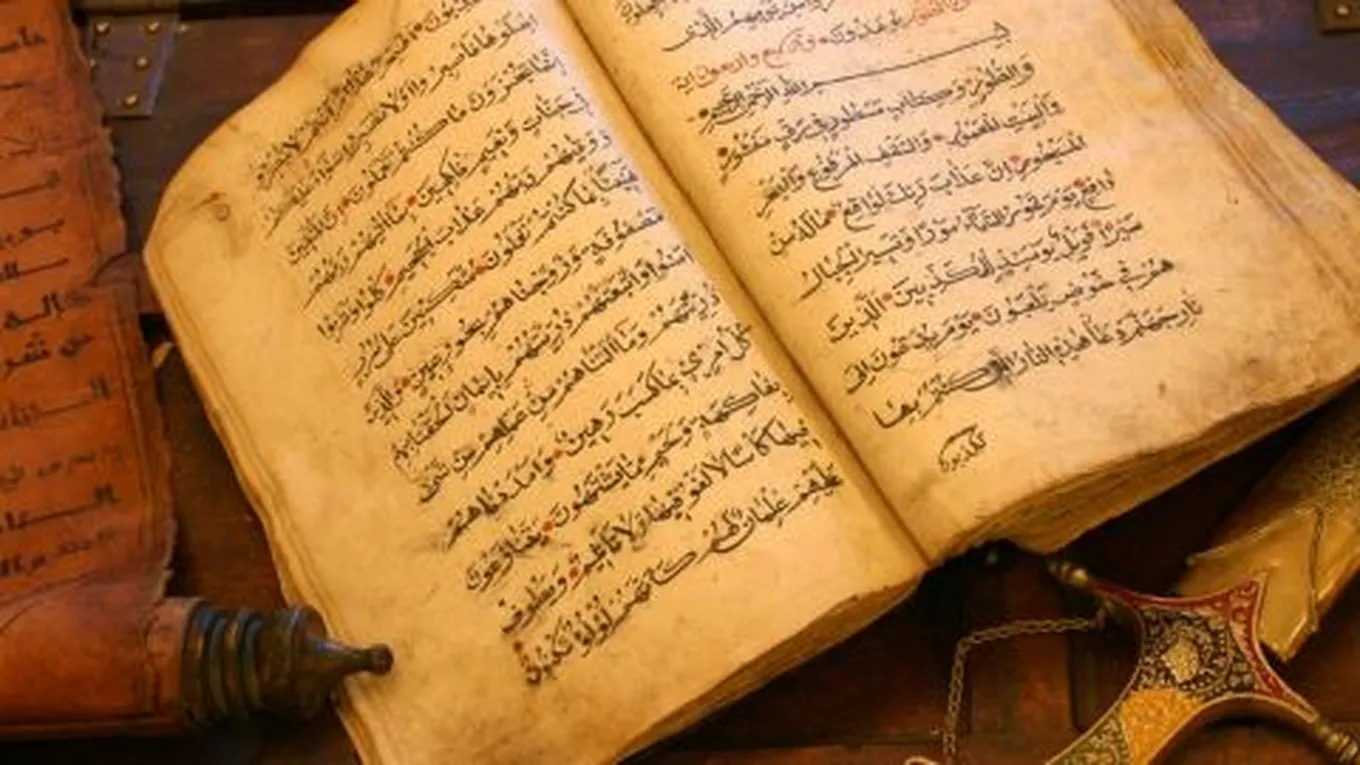 بسم الله الرحمن الرحيم
وَالطُّورِ وَكِتَابٍ مَسْطُورٍ فِي رَقٍّ مَنْشُورٍ
وَالْبَيْتِ الْمَعْمُورِ وَالسَّقْفِ الْمَرْفُوعِ وَالْبَحْرِ
الْمَسْجُورِ اِنَّ عَذَابَ رَبِّكَ لَوَاقِعٌ مَالَهُ مِنْ
دَافِعٍ يَوْمَ تَمُورُ السَّمَاءُ مَوْرًا وَتَسِيرُ الْجِبَالُ
سَيْرًا فَوَيْلٌ يَوْمَئِذٍ لِلْمُكَذِّبِينَ الَّذِينَ
هُمْ فِي خَوْضٍ يَلْعَبُونَ يَوْمَ يُدَعُّونَ اِلَى
نَارِ جَهَنَّمَ دَعًّا هٰذِهِ النَّارُ الَّتِي كُنْتُمْ بِهَا
تكذبون
اِصْلَوْهَا فَاصْبِرُوا اَوْ لَا تَصْبِرُوا سَوَاءٌ عَلَيْكُمْ
اِنَّمَا تُجْزَوْنَ مَا كُنْتُمْ تَعْمَلُونَ اِنَّ الْمُتَّقِينَ
فِي جَنَّاتٍ وَنَعِيمٍ فَاكِهِينَ بِمَا اٰتٰيهُمْ رَبُّهُمْ
وَوَقٰيهُمْ رَبُّهُمْ عَذَابَ الْجَحِيمِ كُلُوا وَاشْرَبُوا
هَنِيئًا بِمَا كُنْتُمْ تَعْمَلُونَ مُتَّكِئِينَ عَلٰى سُرُرٍ
مَصْفُوفَةٍ وَزَوَّجْنَاهُمْ بِحُورٍ عِينٍ وَالَّذِينَ
اٰمَنُوا وَاتَّبَعَتْهُمْ ذُرِّيَّتُهُمْ بِاِيمَانٍ اَلْحَقْنَا بِهِمْ
ذُرِّيَّتَهُمْ وَمَا اَلَتْنَاهُمْ مِنْ عَمَلِهِمْ مِنْ شَيْءٍ
كُلُّ امْرِئٍ بِمَا كَسَبَ رَهِينٌ وَاَمْدَدْنَاهُمْ
بِفَاكِهَةٍ وَلَحْمٍ مِمَّا يَشْتَهُونَ يَتَنَازَعُونَ
فِيهَا كَاْسًا لَا لَغْوٌ فِيهَا وَلَا تَاْثِيمٌ وَيَطُوفُ
عَلَيْهِمْ غِلْمَانٌ لَهُمْ كَاَنَّهُمْ لُؤْلُؤٌ مَكْنُونٌ